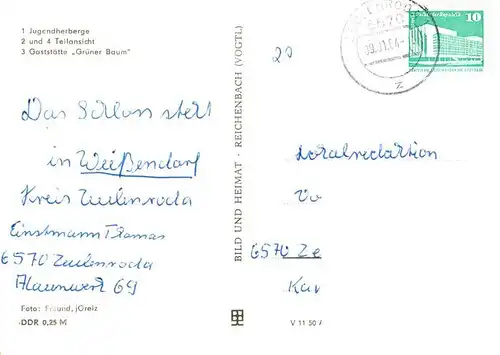 1 Jugendherberge
2 und 4 Teilansicht
3 Gaststätte „Grüner Baum"
20
10
Das Schloss steht
in Weißendorf
Kreis Zeulenroda
Einstmann Thomas
6570 Zeulenroda
Alaunwerk 69
BILD UND HEIMAT · REICHENBACH (VOGTL)
Lokalredaktion
Vo
6570 Ze
Kar
Foto: Freund, Greiz
DDR 0,25 M
V 11 50